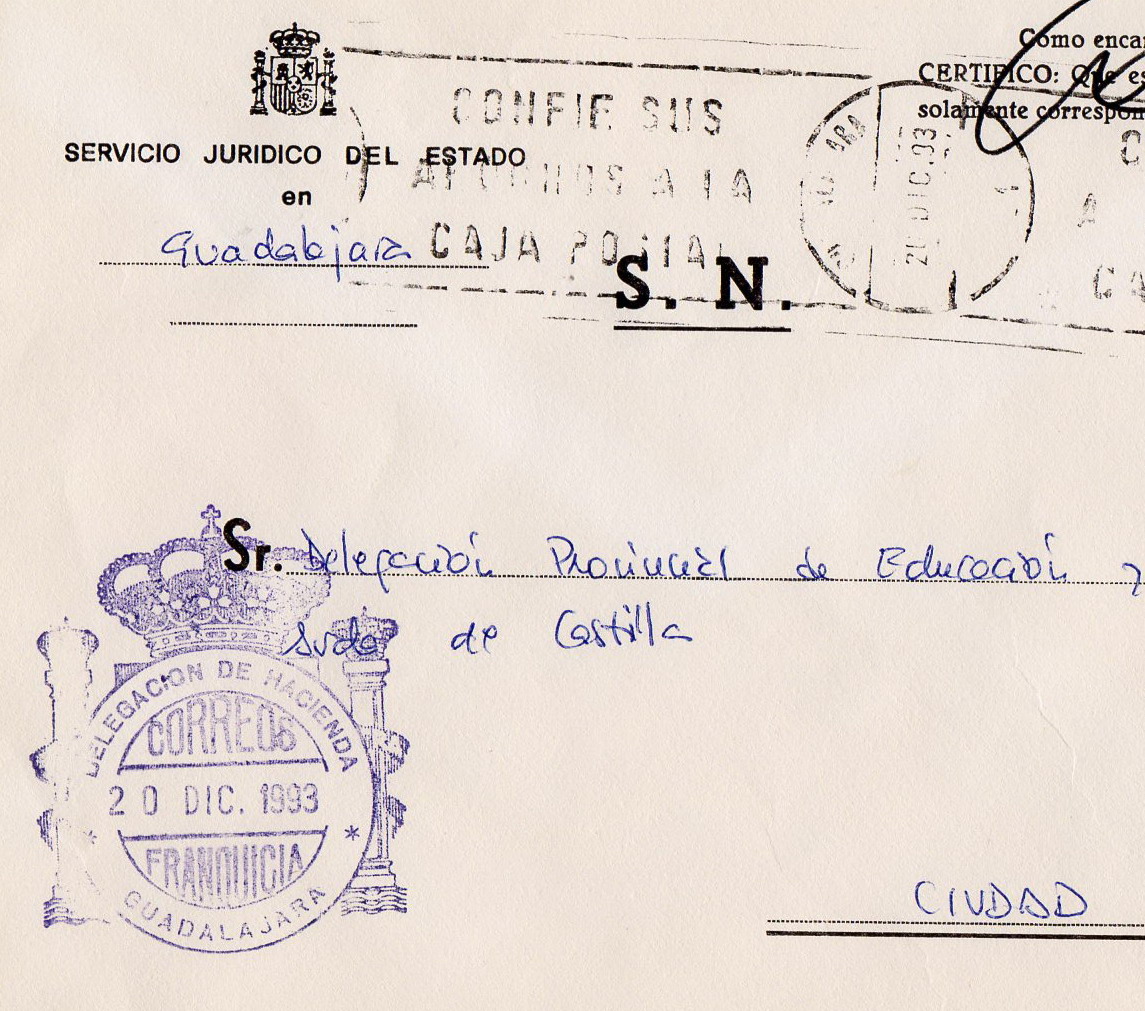 Como encar
CERTIFICO: Que es
solamente correspon
CONFIE SUS
AHORROS A LA
CAJA POSTAL
20 DIC. 93
C
A
CA
SERVICIO JURIDICO DEL ESTADO
en
Guadalajara
S. N.
Sr. Delegación Provincial de Educación y
de Castilla
DELEGACION DE HACIENDA
CORREOS
20 DIC. 1993
FRANQUICIA
GUADALAJARA
CIUDAD